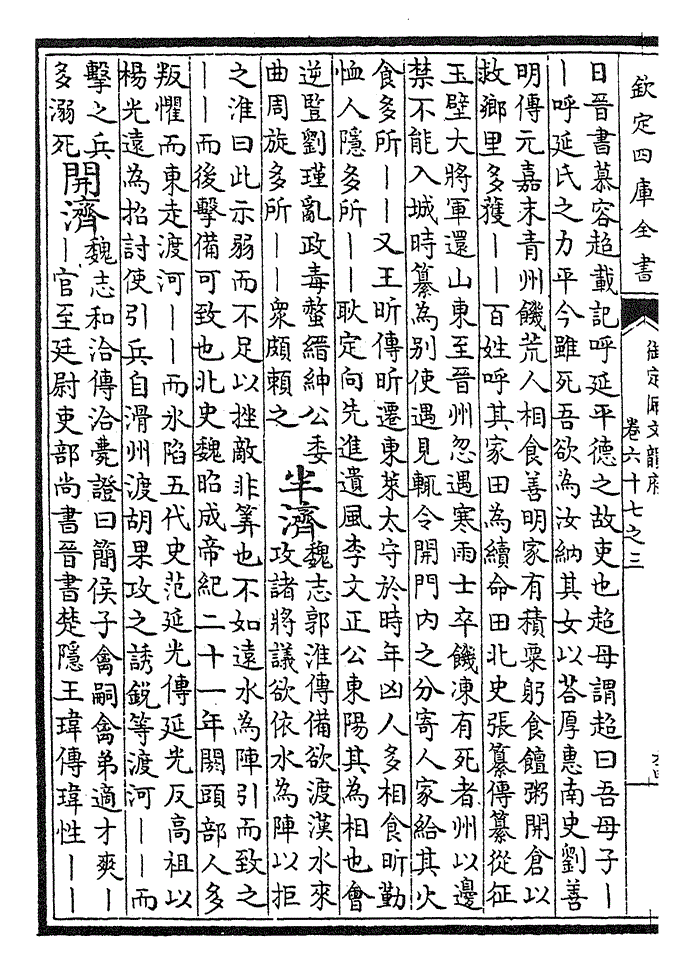 欽定四庫全書
御定佩文韻府
卷六十七之三
日晉書慕容超載記呼延平德之故吏也超母謂超曰吾母子丨
丨呼延氏之力平今雖死吾欲為汝納其女以荅厚惠南史劉善
明傳元嘉末青州饑荒人相食善明家有積粟躬食饘粥開倉以
救鄉里多獲丨丨百姓呼其家田為續命田北史張纂傳纂從征
玉壁大將軍還山東至晉州忽遇寒雨士卒饑凍有死者州以邊
禁不能入城時纂為別使遇見輒令開門内之分寄人家給其火
食多所丨丨又王昕傳昕遷東萊太守於時年凶人多相食昕勤
恤人隱多所丨丨耿定向先進遺風李文正公東陽其為相也會
逆豎劉瑾亂政毒螫縉紳公委
曲周旋多所丨丨衆頗賴之
半濟
魏志郭淮傳備欲渡漢水來
攻諸將議欲依水為陣以拒
之淮曰此示弱而不足以挫敵非筭也不如遠水為陣引而致之
丨丨而後擊備可致也北史魏昭成帝紀二十一年闕頭部人多
叛懼而東走渡河丨丨而水陷五代史范延光傳延光反高祖以
楊光遠為招討使引兵自滑州渡胡果攻之誘銳等渡河丨丨而
擊之兵
多溺死
開濟
魏志和洽傳洽薨證曰簡侯子禽嗣禽弟適才爽丨
丨官至廷尉吏部尚書晉書楚隱王瑋傳瑋性丨丨